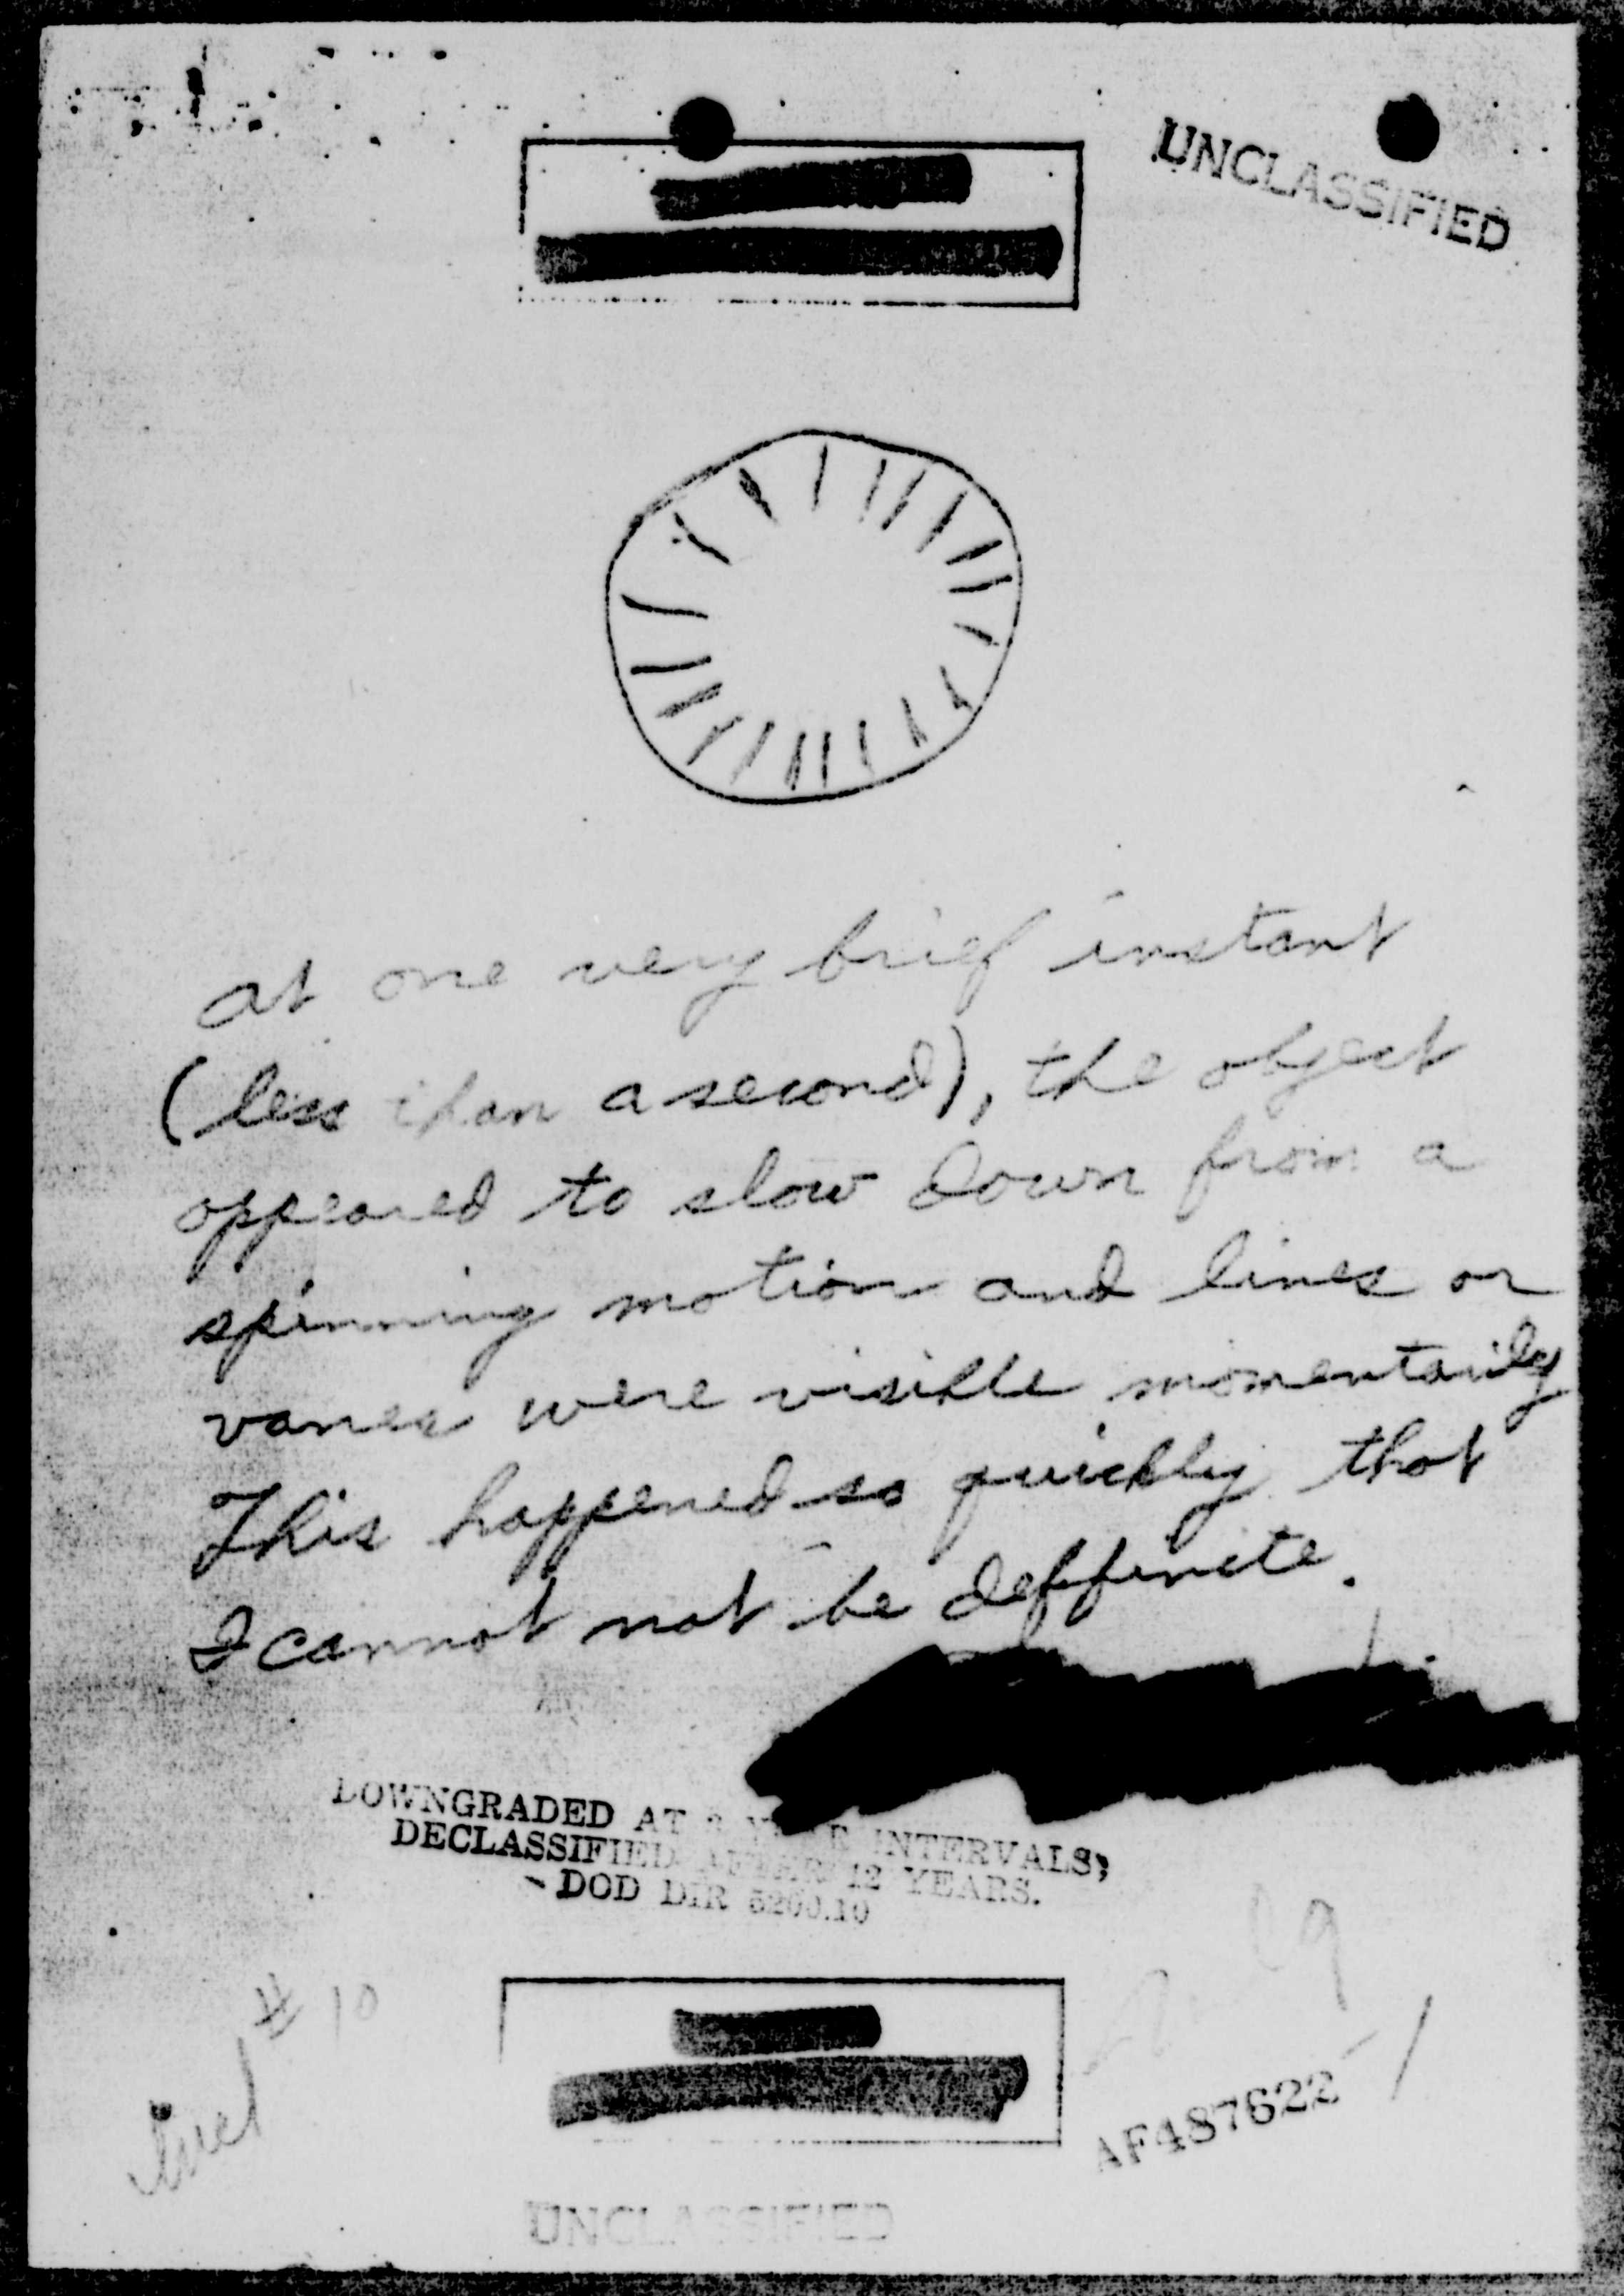 UNCLASSIFIED
at one very brief instant
(less than a second), the object
appeared to slow down from a
spinning motion and lines or
vanes were visible momentarily
This happened so quickly that
I cannot not be deffinite.
DOWNGRADED AT 3 YEAR INTERVALS;
DECLASSIFIED AFTER 12 YEARS.
DOD DIR 5200.10
Incl #10
19
AF487622-1
UNCLASSIFIED